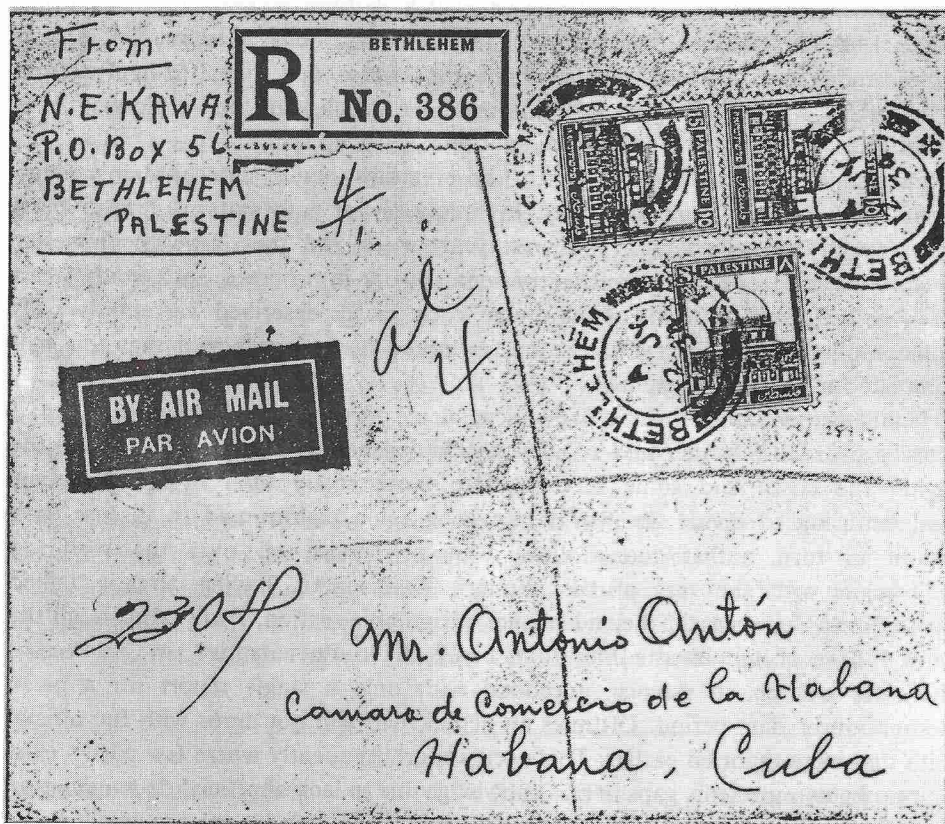 From
N.E. KAWA
P.O. BOX
BETHLEHEM
PALESTINE
BETHLEHEM
R
No. 386
PALESTINE
PALESTINE
PALESTINE
فلسطين
BETHLEHEM
BETHLEHEM
4
al
4
BY AIR MAIL
PAR AVION
Mr. Antonio Antón
Camara de Comercio de la Habana
Habana, Cuba